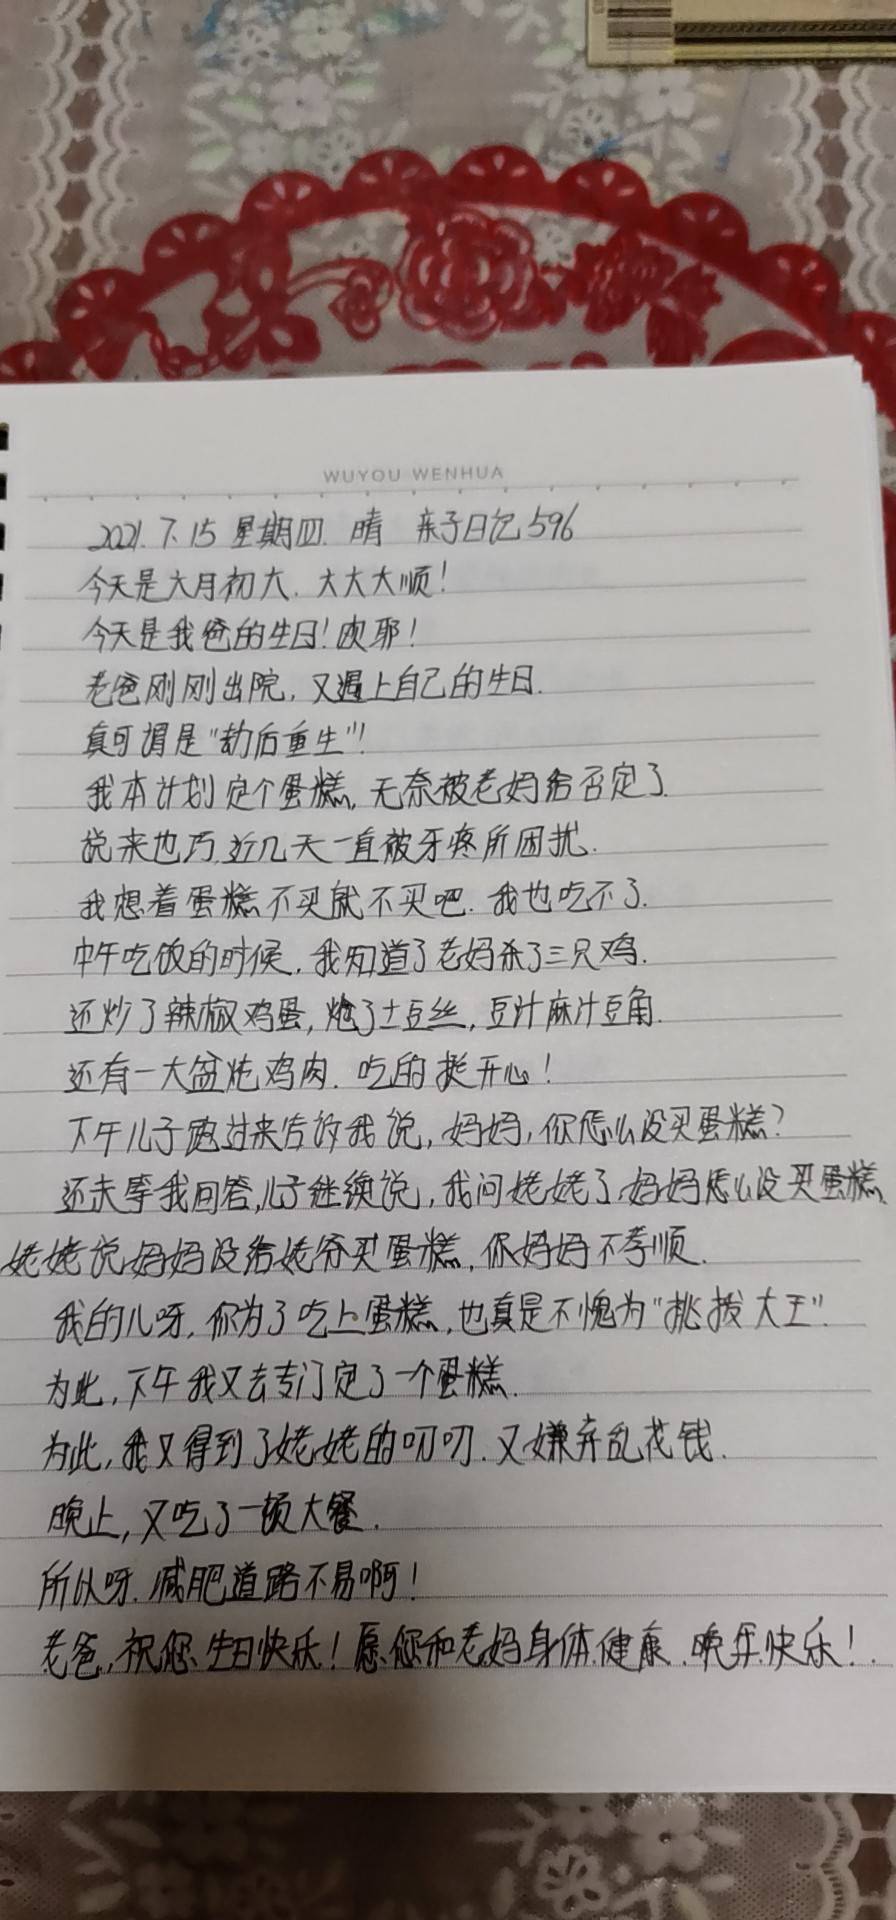 WUYOU WENHUA
2021.7.15 星期四. 晴 亲子日记596
今天是六月初六. 六六大顺!
今天是我爸的生日! 欧耶!
老爸刚刚出院, 又遇上自己的生日.
真可谓是"劫后重生"!
我本计划定个蛋糕, 无奈被老妈给否定了.
说来也巧, 近几天一直被牙疼所困扰.
我想着蛋糕不买就不买吧. 我也吃不了.
中午吃饭的时候, 我知道了老妈杀了三只鸡.
还炒了辣椒鸡蛋, 炝了土豆丝, 豆汁麻汁豆角.
还有一大盆炖鸡肉. 吃的挺开心!
下午儿子跑过来告诉我说, 妈妈, 你怎么没买蛋糕?
还未等我回答, 儿子继续说, 我问姥姥了, 妈妈怎么没买蛋糕,
姥姥说妈妈没给姥爷买蛋糕, 你妈妈不孝顺.
我的儿呀, 你为了吃上蛋糕, 也真是不愧为"挑拨大王".
为此, 下午我又去专门定了一个蛋糕.
为此, 我又得到了姥姥的叨叨. 又嫌弃乱花钱.
晚上, 又吃了一顿大餐.
所以呀. 减肥道路不易啊!
老爸, 祝您生日快乐! 愿您和老妈身体健康. 晚年快乐!